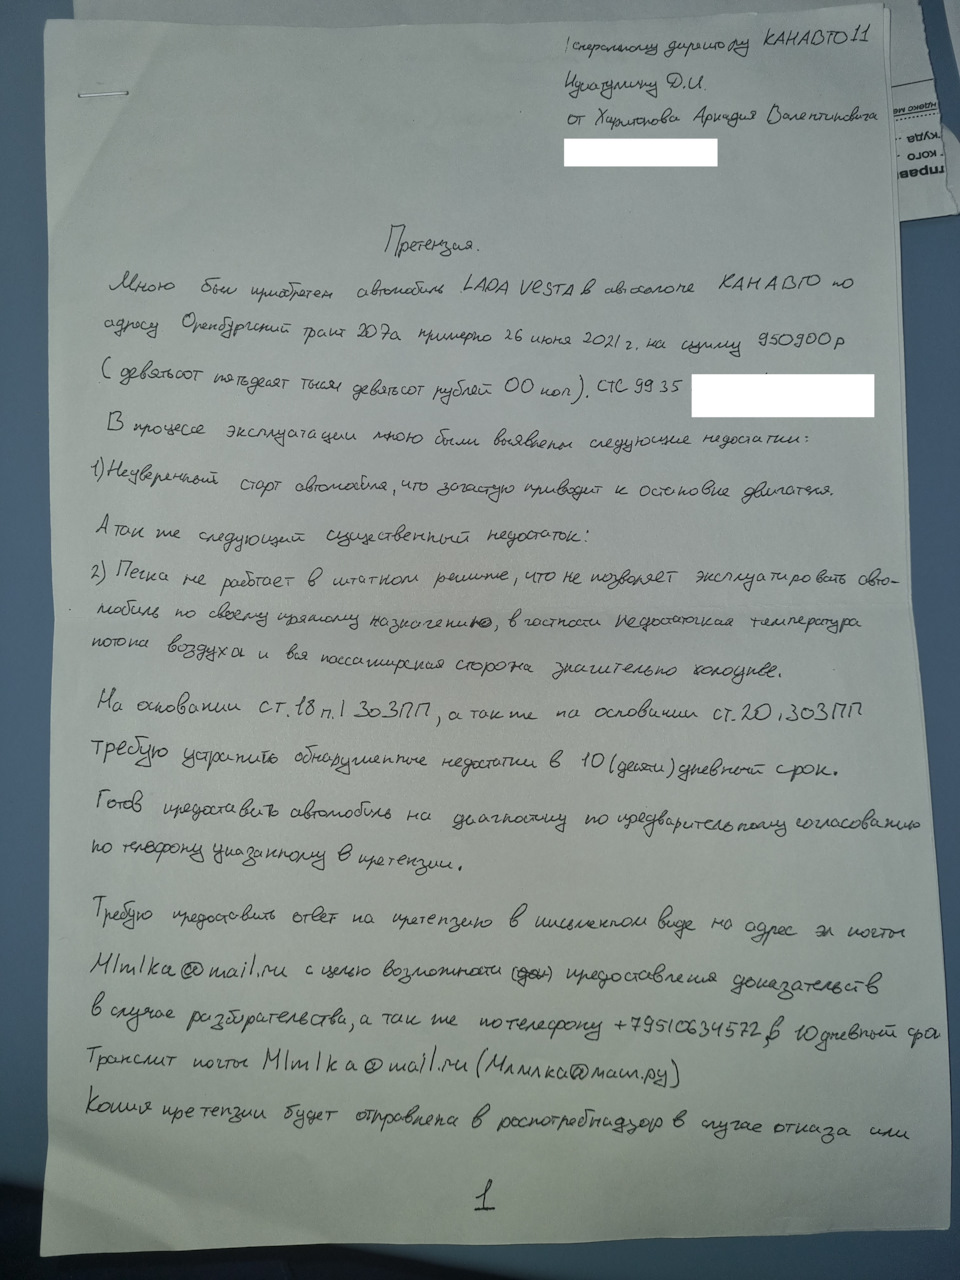 Генеральному директору КАНАВТО 11
Идиатулину Д.И.
от Харитонова Аркадия Валентиновича
Претензия.
Мною был приобретен автомобиль LADA VESTA в автосалоне КАНАВТО по
адресу Оренбургский тракт 207а примерно 26 июня 2021г. на сумму 950900р
(девятьсот пятьдесят тысяч девятьсот рублей 00 коп). СТС 99 35
В процессе эксплуатации мною были выявлены следующие недостатки:
1) Неуверенный старт автомобиля, что зачастую приводит к остановке двигателя.
А так же следующий существенный недостаток:
2) Печка не работает в штатном режиме, что не позволяет эксплуатировать авто-
мобиль по своему прямому назначению, в частности недостаточная температура
потока воздуха и вся пассажирская сторона значительно холоднее.
На основании ст.18 п.1 ЗОЗПП, а так же на основании ст.20, ЗОЗПП
требую устранить обнаруженные недостатки в 10 (десяти) дневный срок.
Готов предоставить автомобиль на диагностику по предварительному согласованию
по телефону указанному в претензии.
Требую предоставить ответ на претензию в письменном виде на адрес эл почты
M1m1ka@mail.ru с целью возможности предоставления доказательств
в случае разбирательства, а так же по телефону +79510634572, в 10 дневный срок
Транслит почты M1m1ka@mail.ru (М1м1ка@маил.ру)
Копия претензии будет отправлена в роспотребнадзор в случае отказа или
1
ндекс ме
куда
кого